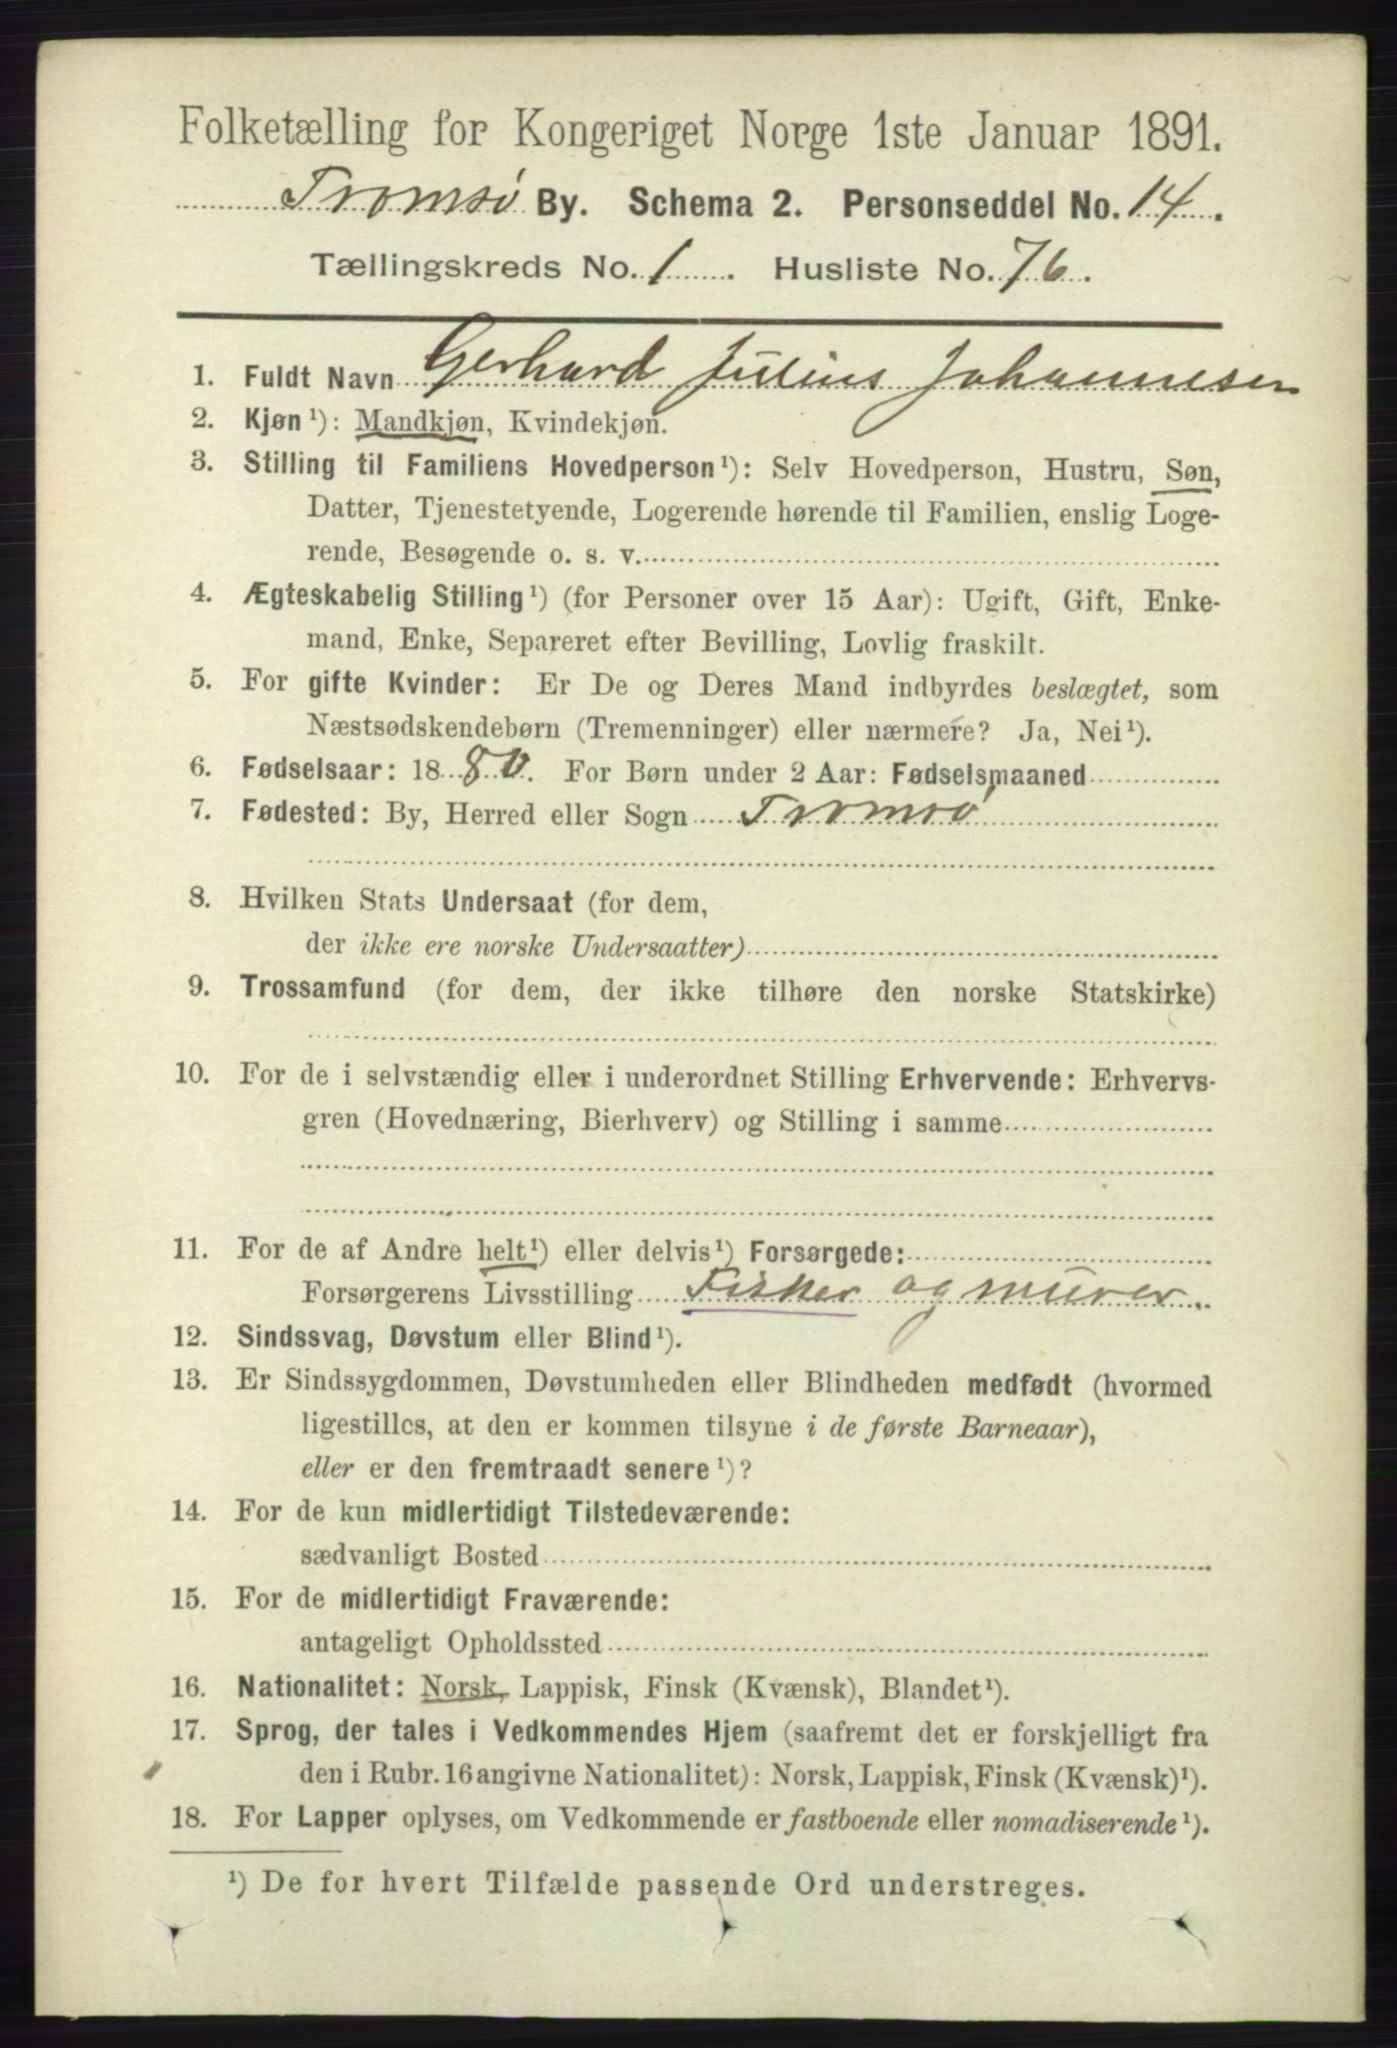 Folketælling for Kongeriget Norge 1ste Januar 1891.
Tromsø By. Schema 2. Personseddel No. 14.
Tællingskreds No. 1. Husliste No. 76.
1. Fuldt Navn Gerhard Julius Johannesen
2. Kjøn¹): Mandkjøn, Kvindekjøn.
3. Stilling til Familiens Hovedperson¹): Selv Hovedperson, Hustru, Søn,
Datter, Tjenestetyende, Logerende hørende til Familien, enslig Loge-
rende, Besøgende o. s. v.
4. Ægteskabelig Stilling¹) (for Personer over 15 Aar): Ugift, Gift, Enke-
mand, Enke, Separeret efter Bevilling, Lovlig fraskilt.
5. For gifte Kvinder: Er De og Deres Mand indbyrdes beslægtet, som
Næstsødskendebørn (Tremenninger) eller nærmere? Ja, Nei¹).
6. Fødselsaar: 1880. For Børn under 2 Aar: Fødselsmaaned
7. Fødested: By, Herred eller Sogn Tromsø
8. Hvilken Stats Undersaat (for dem,
der ikke ere norske Undersaatter)
9. Trossamfund (for dem, der ikke tilhøre den norske Statskirke)
10. For de i selvstændig eller i underordnet Stilling Erhvervende: Erhvervs-
gren (Hovednæring, Bierhverv) og Stilling i samme
11. For de af Andre helt¹) eller delvis¹) Forsørgede:
Forsørgerens Livsstilling Fisker og murer.
12. Sindssvag, Døvstum eller Blind¹).
13. Er Sindssygdommen, Døvstumheden eller Blindheden medfødt (hvormed
ligestilles, at den er kommen tilsyne i de første Barneaar),
eller er den fremtraadt senere¹)?
14. For de kun midlertidigt Tilstedeværende:
sædvanligt Bosted
15. For de midlertidigt Fraværende:
antageligt Opholdssted
16. Nationalitet: Norsk, Lappisk, Finsk (Kvænsk), Blandet¹).
17. Sprog, der tales i Vedkommendes Hjem (saafremt det er forskjelligt fra
den i Rubr. 16 angivne Nationalitet): Norsk, Lappisk, Finsk (Kvænsk)¹).
18. For Lapper oplyses, om Vedkommende er fastboende eller nomadiserende¹).
¹) De for hvert Tilfælde passende Ord understreges.